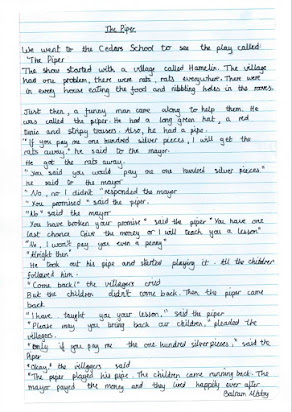 The Piper
We went to the Cedars School to see the play called
"The Piper
The show started with a village called Hamelin. The village
had one problem, there were rats, rats everywhere. There were
in every house eating the food and nibbling holes in the
Just then, a funny man came along to help them. He
was called the piper. He had a long green hat, a red
tunic and stripey trousers. Also, he had a pipe.
"If you pay me one hundred silver pieces, I will get the
rats away." he said to the mayor.
He got the rats away.
"You said you would pay me one hundred silver pieces"
he said to the mayor
"No, no I didn't" responded the mayor
"You promised" said the piper.
"No" said the mayor
You have broken your promise" said the piper "You have one
last chance. Give the money or I will teach you a lesson"
"No, I won't pay you even a penny"
"Alright then"
He took out his pipe and started playing it. All the children
followed him.
"Come back!" the villagers cried
But the children didn't come back. Then the piper came
back
"I have taught you your lesson," said the piper
"Please may you bring back our children." pleaded the
villagers.
"Only if you pay me the one hundred silver pieces," said the
Piper
"Okay," the villagers said
"The piper played his pipe. The children came running back. The
mayor payed the money and they lived happily ever after